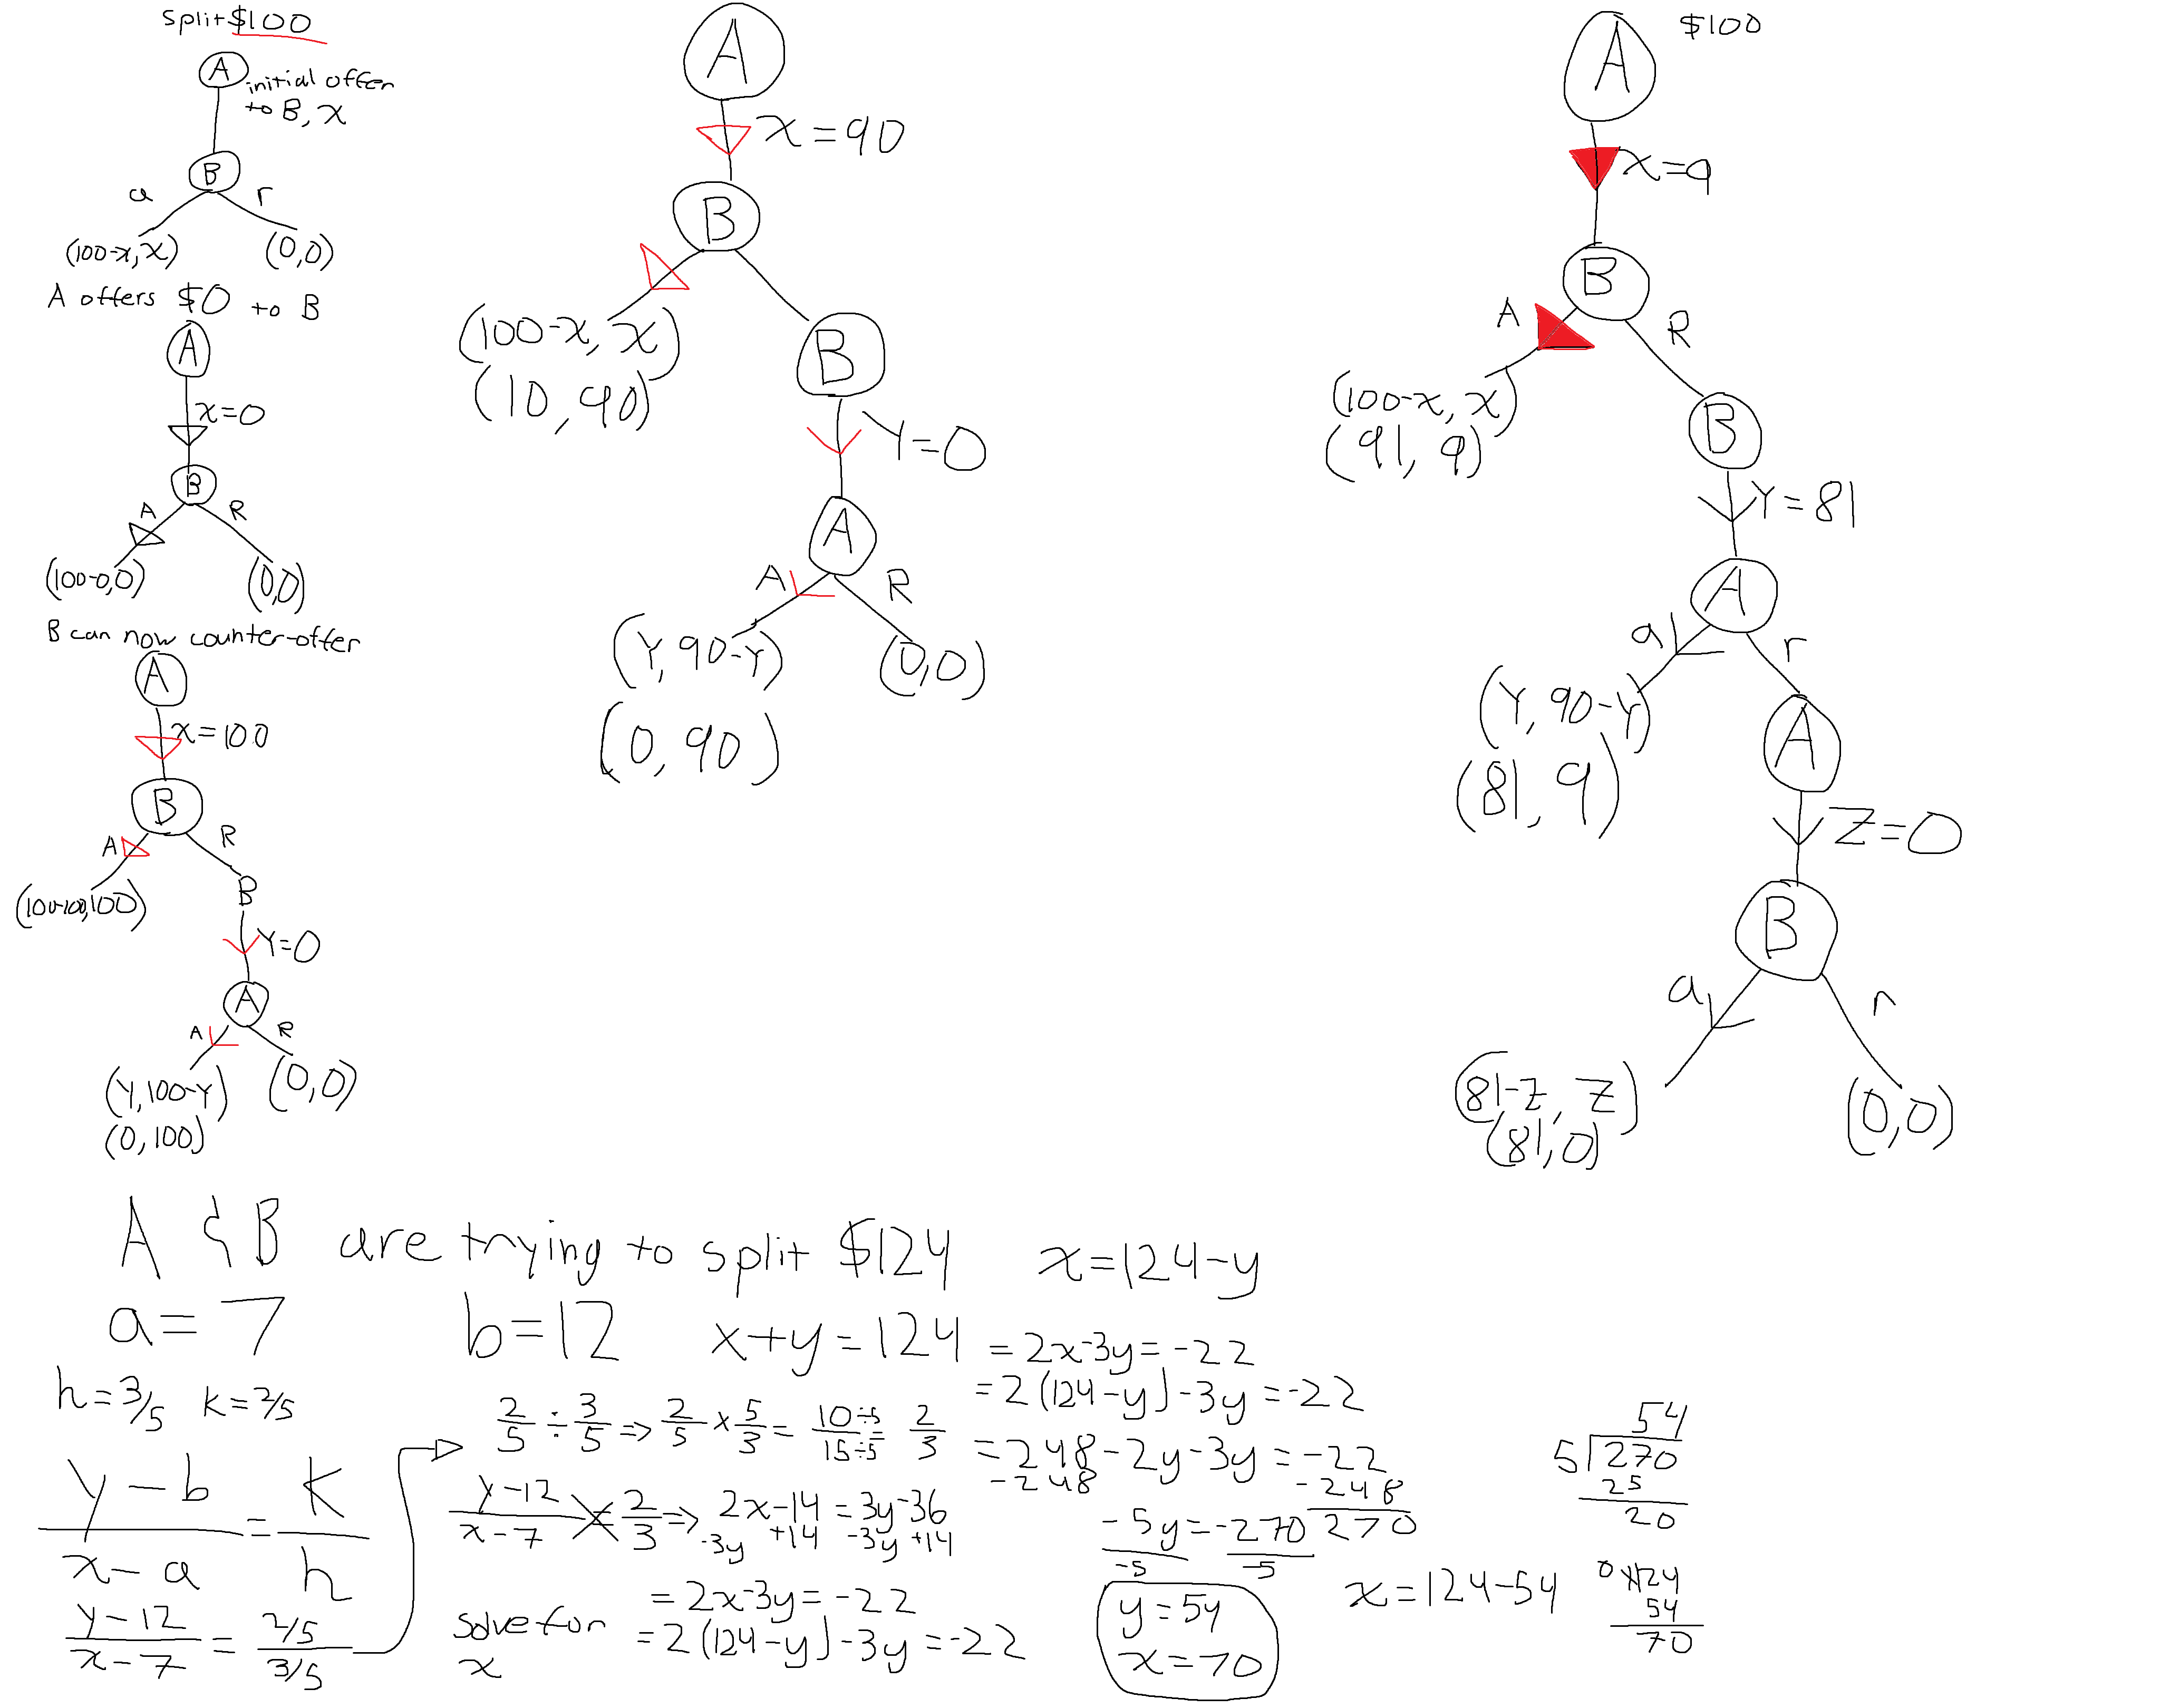 split $100
A
initial offer
to B, x
B
a
r
(100-x, x)
(0,0)
A offers $0 to B
A
x=0
B
A
R
(100-0,0)
(0,0)
B can now counter-offer
A
x=100
B
A
R
(100-100,100)
B
Y=0
A
A
R
(Y,100-Y)
(0,0)
(0,100)
A
x=90
B
(100-x, x)
(10,90)
B
Y=0
A
A
R
(Y,90-Y)
(0,0)
(0,90)
$100
A
x=9
B
A
R
(100-x, x)
(91, 9)
B
Y=81
A
a
r
(Y,90-Y)
(81,9)
A
Z=0
B
a
r
(81-Z, Z)
(81,0)
(0,0)
A & B are trying to split $124
a=7
b=12
h=3/5 k=2/5
y-b
x-a
=
k
h
y-12
x-7
=
2/5
3/5
2/5 ÷ 3/5 => 2/5 × 5/3 = 10÷5/15÷5 = 2/3
y-12
x-7
=
2
3
=> 2x-14=3y-36
-3y +14 -3y +14
=2x-3y=-22
solve for
x
=2(124-y)-3y=-22
x=124-y
x+y=124
=2x-3y=-22
=2(124-y)-3y=-22
=248-2y-3y=-22
-248 -248
-5y=-270
-5 -5
270
y=54
x=70
54
5 270
25
20
x=124-54
0 1124
54
70